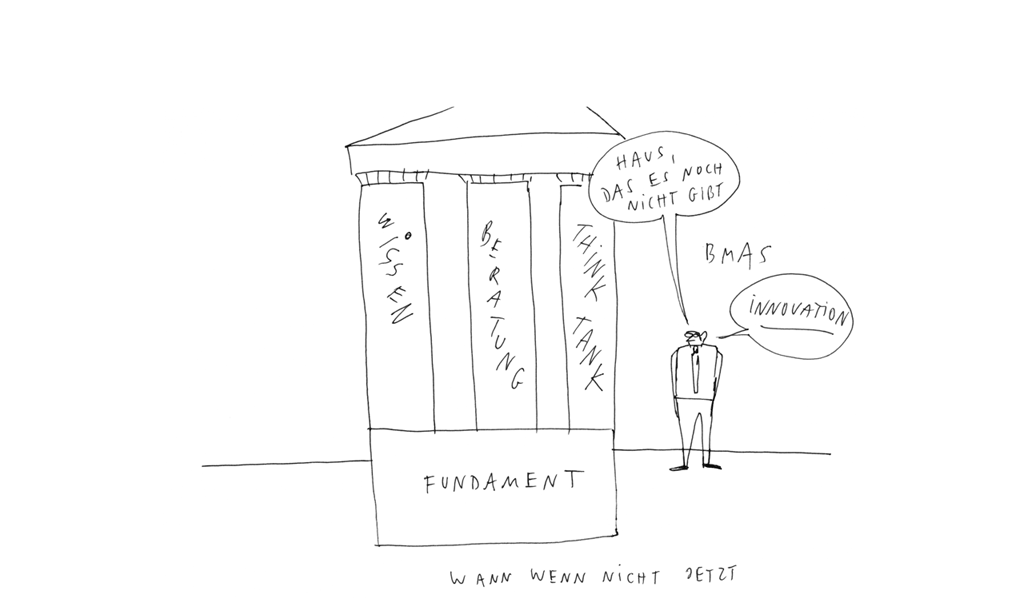 HAUS,
DAS ES NOCH
NICHT GIBT
BMAS
INNOVATION
WISSEN
BERATUNG
THINK TANK
FUNDAMENT
WANN WENN NICHT JETZT